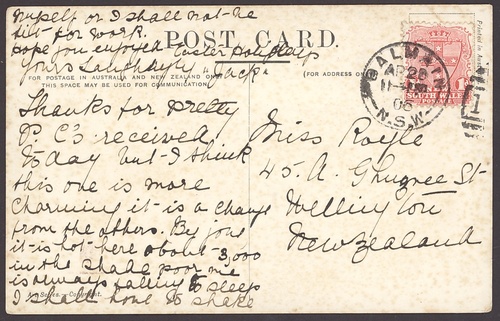 myself or I shall not be
fit for work.
hope you enjoyed Easter holidays
yours
"Jack"
POST CARD.
FOR POSTAGE IN AUSTRALIA AND NEW ZEALAND ONLY
THIS SPACE MAY BE USED FOR COMMUNICATION.
(FOR ADDRESS ONLY
Printed in
BALMAIN
AP 25
06
N.S.W
SOUTH WALES
Thanks for pretty
P C's received
to day but I think
this one is more
charming it is a change
from the others. By jove
it is hot here about 3,000
in the shade poor me
is always falling to sleep
I shall have to shake
Miss Royle
45. A. Ghuznee St
Wellington
New Zealand